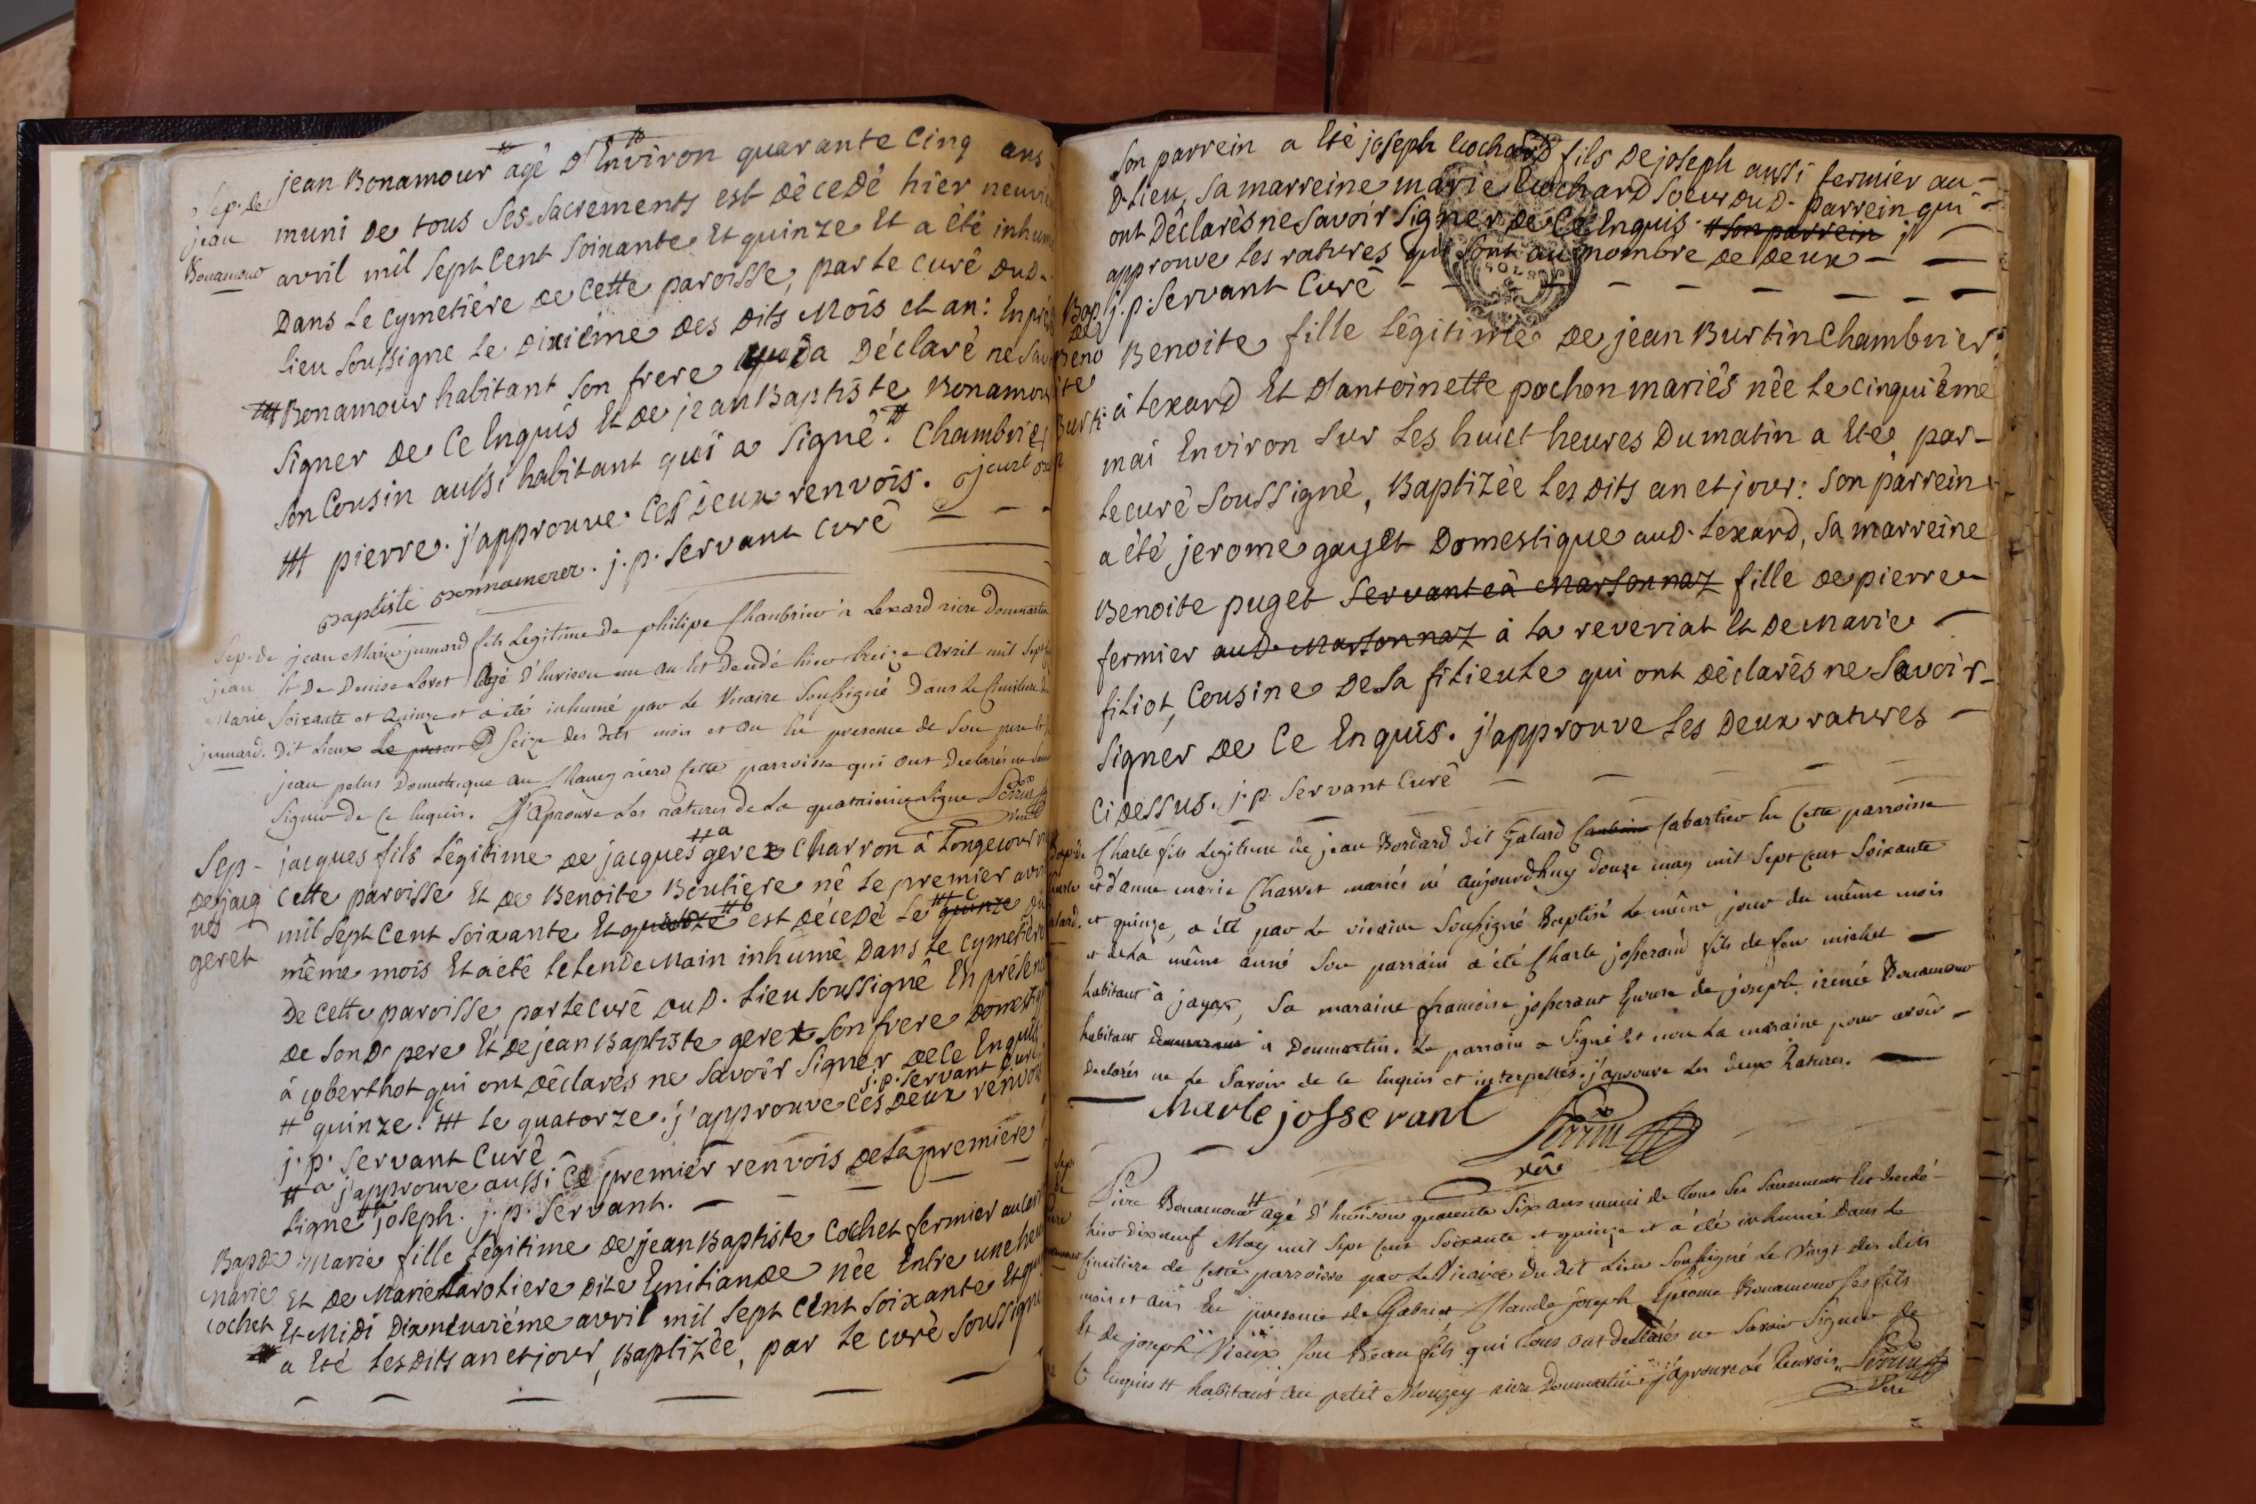 Sep. de
jean
Bonamour
jean Bonamour # agé d'Environ quarante cinq ans
muni de tous ses sacrements est décedé hier neuvie
avril mil sept cent soixante Et quinze Et a été inhum
dans le cymetiére de cette paroisse, par le curé dud.
lieu soussigne le dixiéme des dits Mois et an: En pré
# Bonamour habitant son frere qui a déclaré ne sav
signer de ce Enquis Et de jean Baptiste Bonamour
son Cousin aussi habitant qui a signé. # chambrier
# pierre. j'approuve. ces deux renvois.
Baptiste j. p. servant curé
Sep. de
jean
Marie
jumard.
jean Marie jumard fils Legitime de philipe Chambrier à Lexard riere Domartin
et De Denise Loret agé d'Environ un an est Decedé hier treize Avril mil sept
soixante et Quinze et a été inhumé par le Vicaire soussigné Dans le Cimitiere du
Dit Lieux Le seize des dits mois et an En presence de son pere et
jean pelus Domestique au riere cette parroisse qui ont Declarés ne
signer de ce Enquis. J'aprouve Les ratures de La quatrieme Ligne Perrin
vicaire
Sep-
de jacq
ues
geret
jacques fils légitime de jacques #a geret charron à Longecour
cette paroisse Et de Benoite Boutiere né le premier avr
mil sept cent soixante Et quinze #b est décedé le quinze du
même mois Et a été le lendemain inhumé dans le cymetiére
de cette paroisse par le curé dud. lieu soussigné En présen
de son d. pere Et de jean Baptiste geret son frere domesti
à coberthot qui ont déclarés ne savoir signer de ce Enquis
j. p. servant curé
#b quinze. #c le quatorze. j'approuve ces deux renvois
j. p. servant curé
#a j'approuve aussi ce premier renvois de la premiere
ligne # joseph. j. p. servant.
Bap de
Marie
cochet
Marie fille légitime de jean Baptiste Cochet fermier
Et de Marie Laroliere dite Emitiande née Entre une heu
Et Midi dix neuviéme avril mil sept cent soixante Et qu
a Eté les dits an et jour, Baptizée, par le curé soussigné
son parrein a Eté joseph cochard fils de joseph aussi fermier au
d. lieu, sa marreine marie cochard soeur dud. parrein qui
ont déclarés ne savoir signer de ce Enquis. # son parrein j'
approuve les ratures qui sont au nombre de deux
j. p. servant curé
Bap
de
Beno
ite
Burti
Benoite fille légitime de jean Burtin chambrier
à lexard Et d'antoinette pochon mariés née le cinquiéme
mai Environ sur les huict heures du matin a Eté par
le curé soussigné, Baptizée les dits an et jour: son parrein
a été jerome gayet domestique aud. lexard, sa marreine
Benoite puget servante à Marsonnaz fille de pierre
fermier aud. Marsonnaz à la reveriat Et de Marie
filiot, Cousine de sa filieule qui ont déclarés ne savoir
signer de ce Enquis. j'approuve les deux ratures
ci dessus. j. p. servant curé
Charle fils Legitime de jean Bordard dit Galard Cabartier En Cette parroisse
et d'anne marie Charvet mariés né aujourdhuy douze may mil sept cent soixante
et quinze, a été par le vicaire soussigné Baptisé le même jour du même mois
et de la même anné son parrain a été Charle josserand fils de feu michel
habitant à jayat, sa maraine francoise josserant Epouse de joseph irenée Bonamour
habitant à Domartin. Le parrain a signé Et non La maraine pour avoir
Declarés ne Le savoir de Ce Enquis et interpellés. j'aprouve Les deux Ratures.
Charle josserant
Perrin
vire
Pierre Bonamour # agé d'Environ quarente six ans muni de tous ses sacremens Est Decedé
hier dixneuf May mil sept cent soixante et quinze et a été inhumé Dans Le
Cimitiere de Cette parroisse par Le Vicaire du dit Lieu soussigné Le Vingt des dits
mois et an En presence de Gabriet Claude joseph Bonamour ses fils
Et de joseph Vieux son Beau fils qui tous ont declarés ne savoir signer de
Ce Enquis # habitant au petit Mongey riere Domartin. j'aprouve Le Renvois. Perrin
Vire